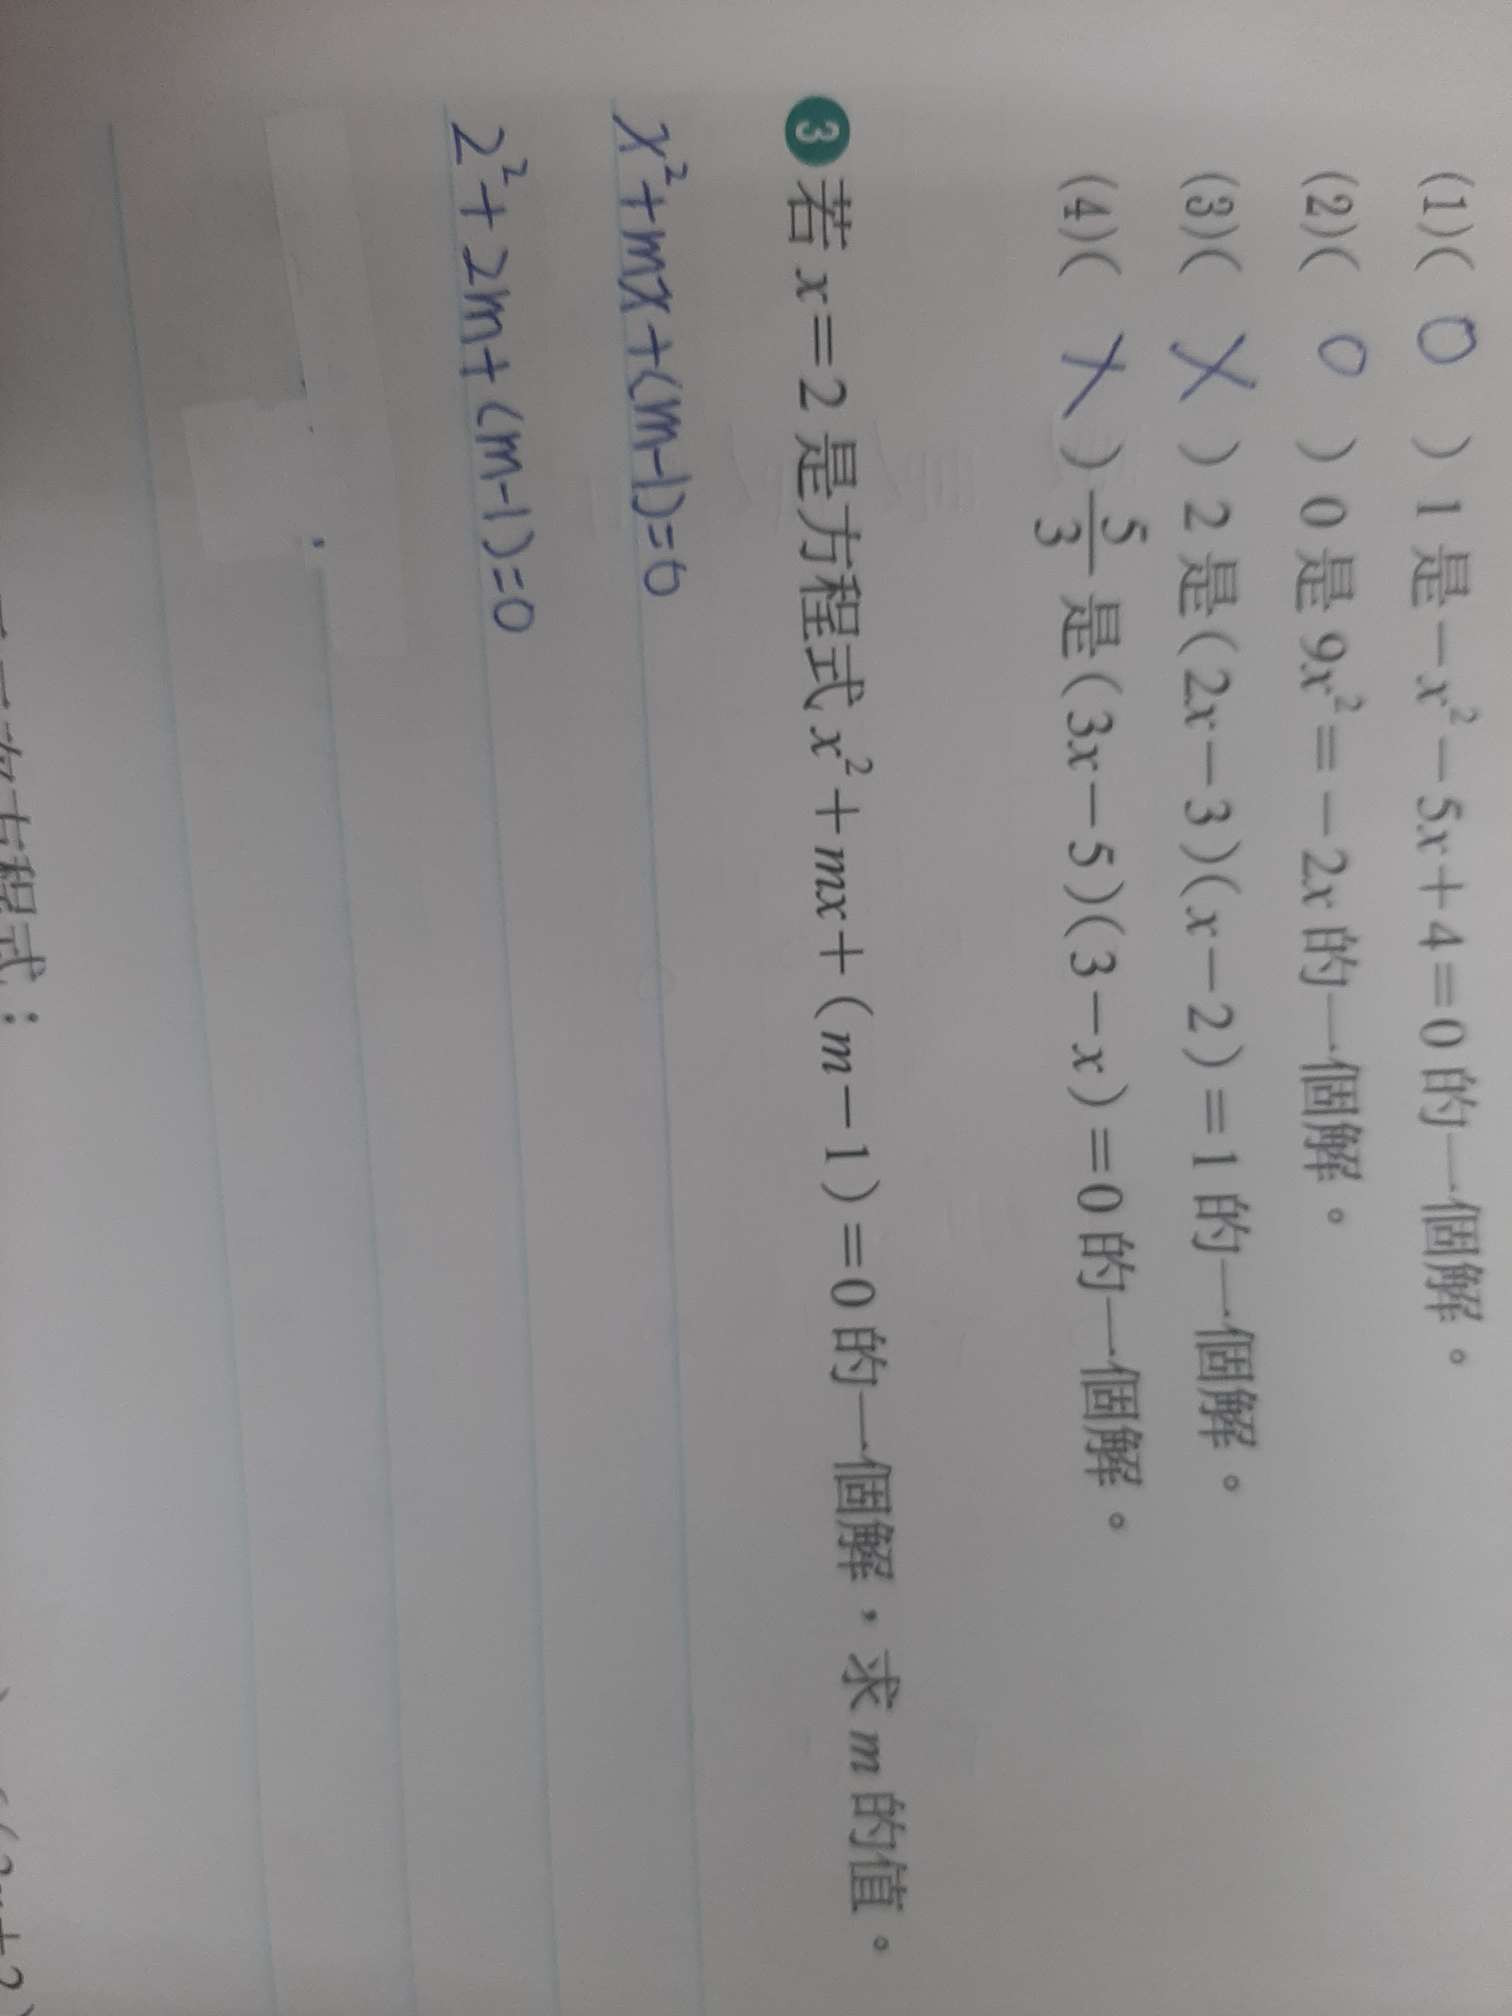 (1)( O )1是-x²-5x+4=0的一個解。
(2)( O )0是9x²=-2x的一個解。
(3)( X )2是(2x-3)(x-2)=1的一個解。
(4)( X )5/3是(3x-5)(3-x)=0的一個解。
3 若x=2是方程式x²+mx+(m-1)=0的一個解，求m的值。
x²+mx+(m-1)=0
2²+2m+(m-1)=0
方程式：